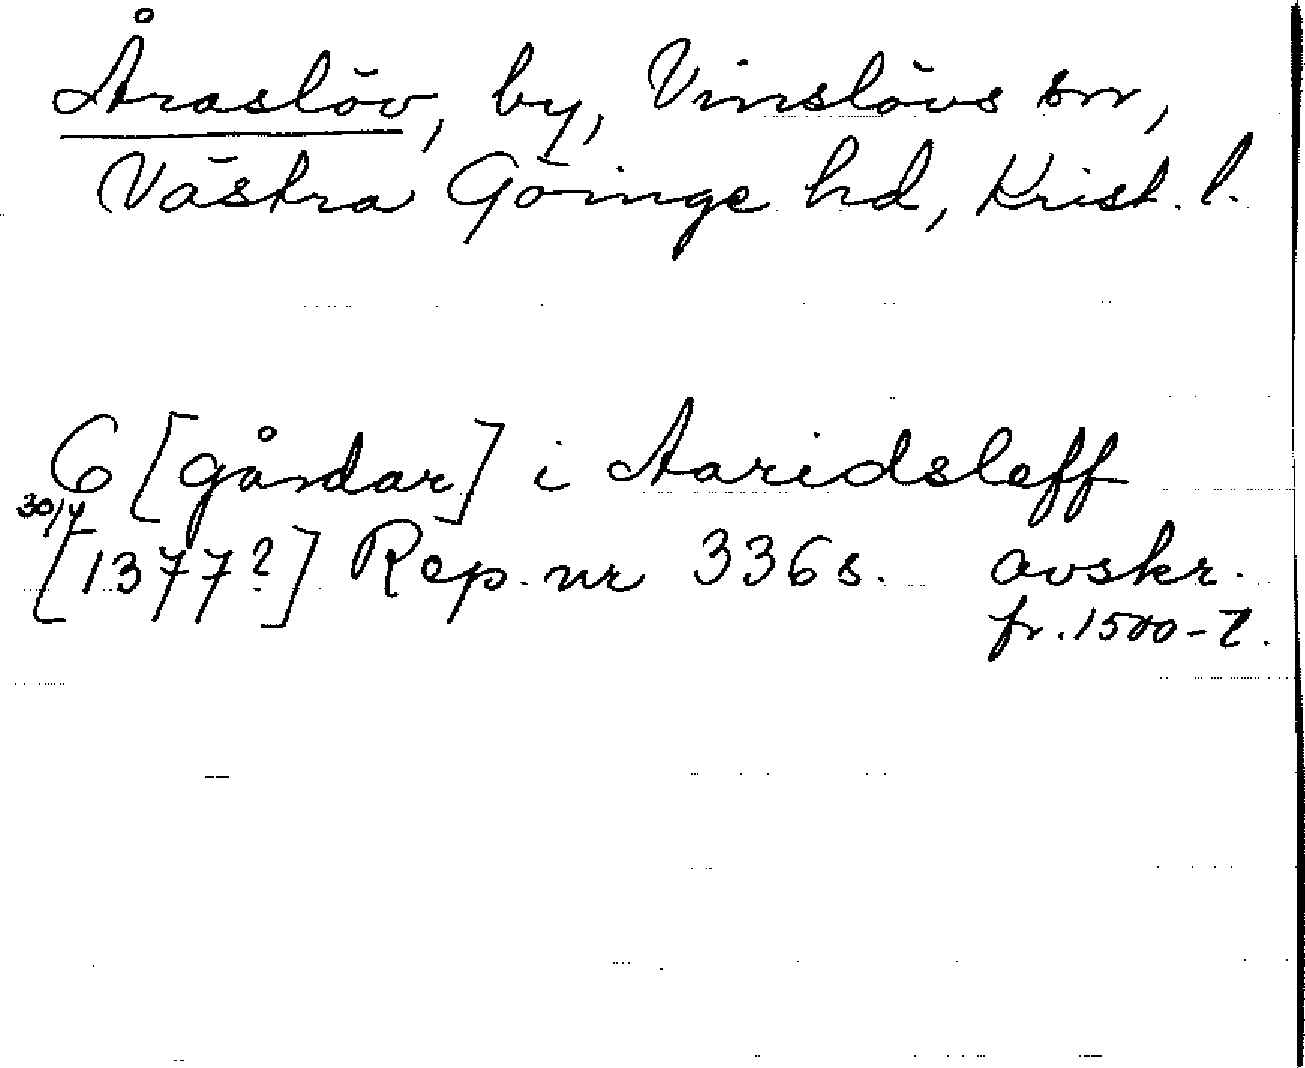 Åraslöv, by, Vinslövs sn,
Västra Göinge hd, Krist. l.
6 [gårdar] i Aaridsleff
30/4
[1377?] Rep. nr 3368. avskr.
fr. 1500-t.